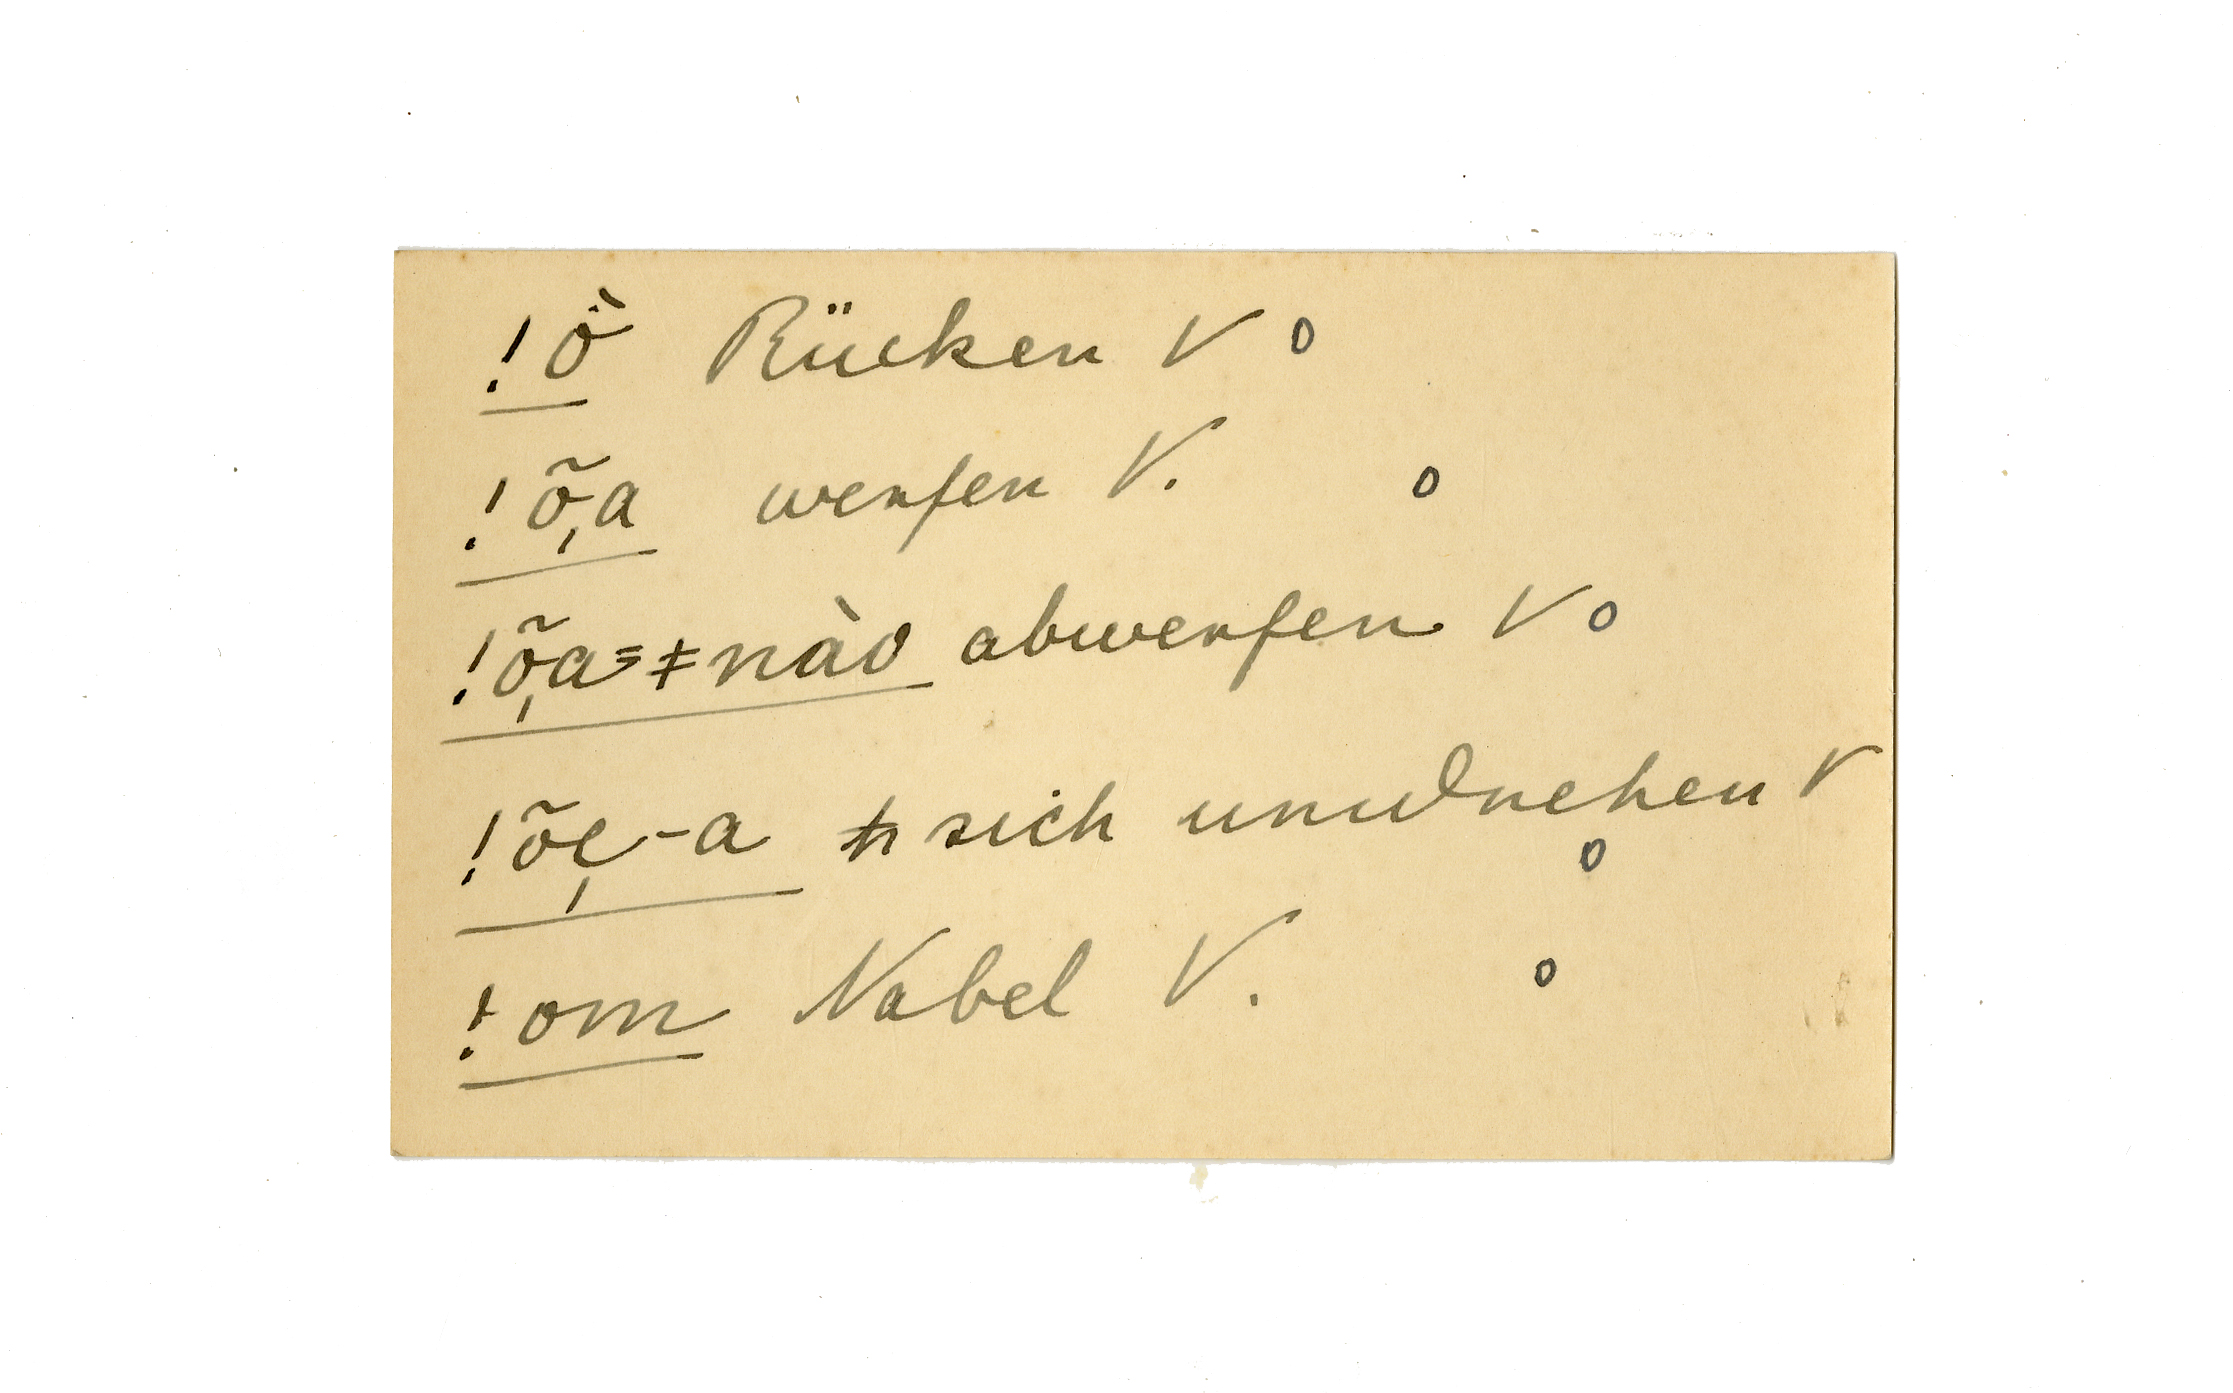 !ò Rücken V o
!õ̩a werfen V. o
!õ̩a=ǂnào abwerfen V o
!õe̩-a sich umdrehen V
o
!om Nabel V. o